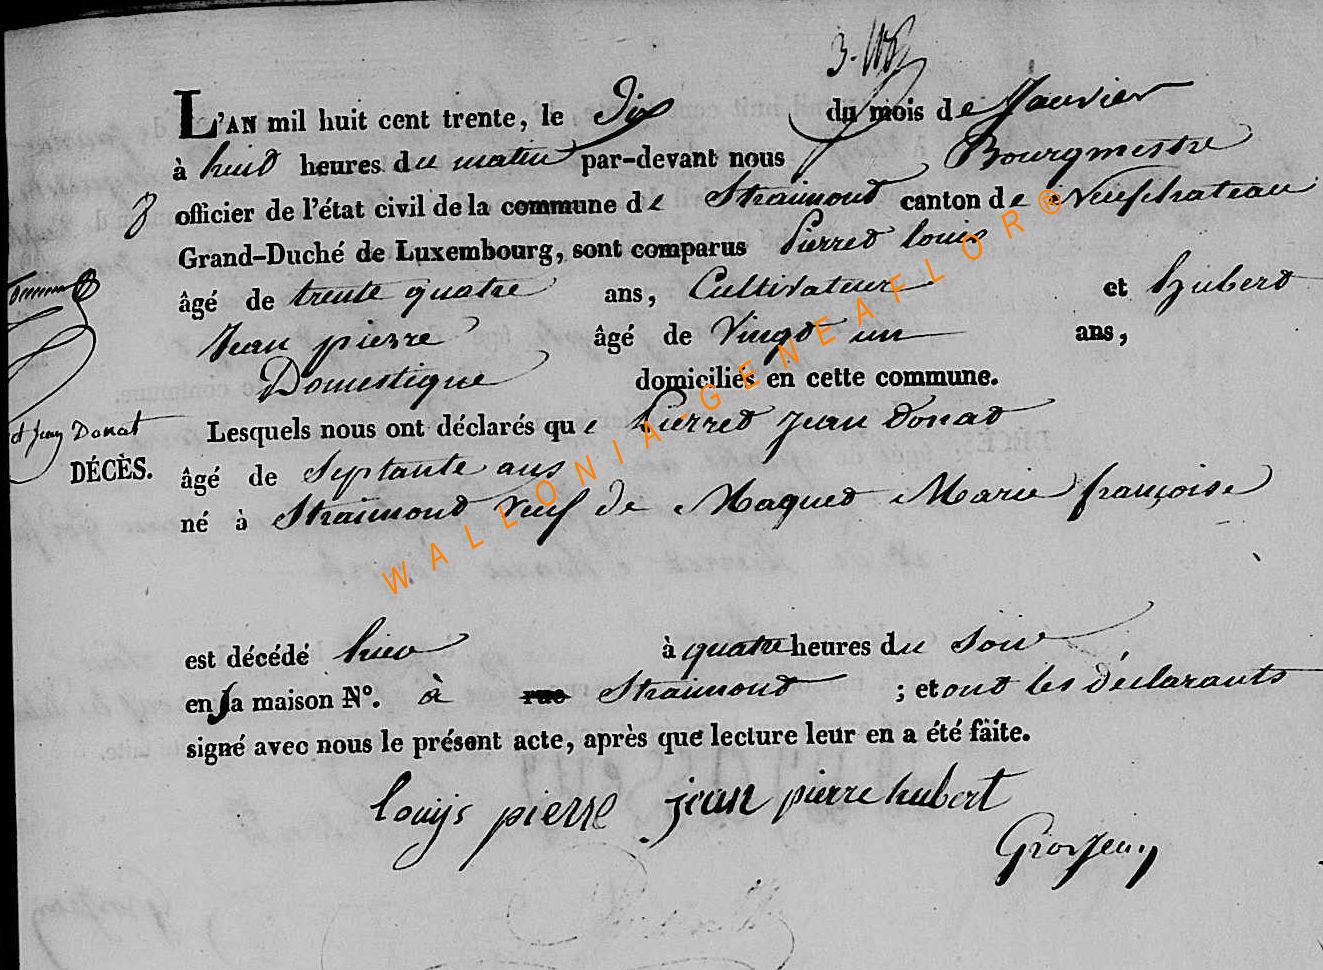 L'AN mil huit cent trente, le Dix du mois de Janvier
à huit heures du matin par-devant nous Bourgmestre
officier de l'état civil de la commune de Straimont canton de Neufchateau
Grand-Duché de Luxembourg, sont comparus Pierret louis
âgé de trente quatre ans, Cultivateur et hubert
Jean pierre âgé de Vingt un ans,
Domestique domiciliés en cette commune.
et Jean Donat
Lesquels nous ont déclarés que Pierret Jean Donat
DÉCÈS.
âgé de Septante ans
né à Straimont Veuf de Maquet Marie françoise
est décédé hier à quatre heures du Soir
en sa maison N°. à rue Straimont ; et ont les déclarants
signé avec nous le présent acte, après que lecture leur en a été faite.
louijs pierre jean pierre hubert
Grosjean
WALLONIA-GENEAFLOR®